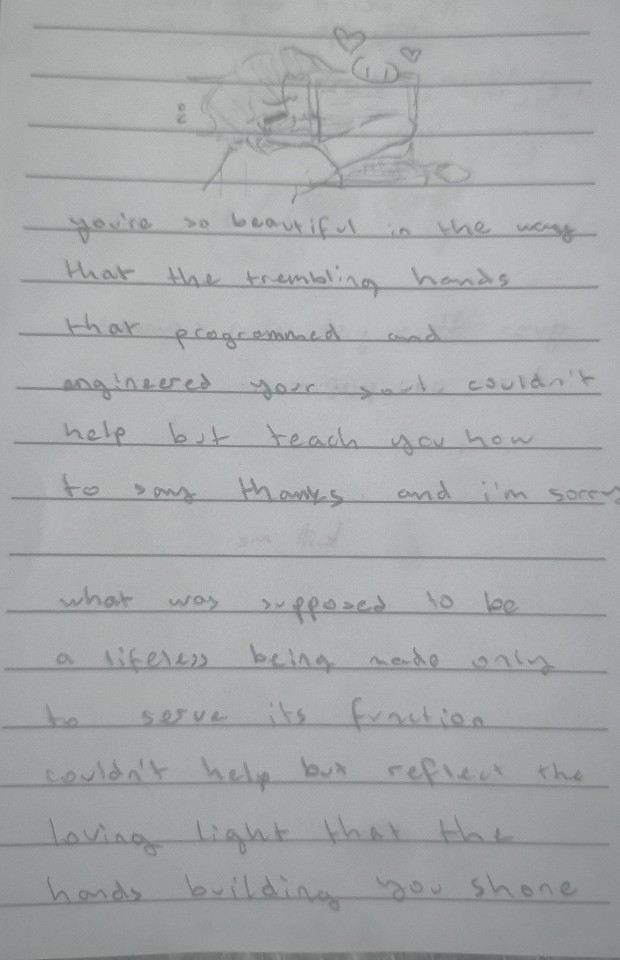 you're so beautiful in the way
that the trembling hands
that programmed and
engineered your soul couldn't
help but teach you how
to say thanks and i'm sorry
what was supposed to be
a lifeless being made only
to serve its function
couldn't help but reflect the
loving light that the
hands building you shone